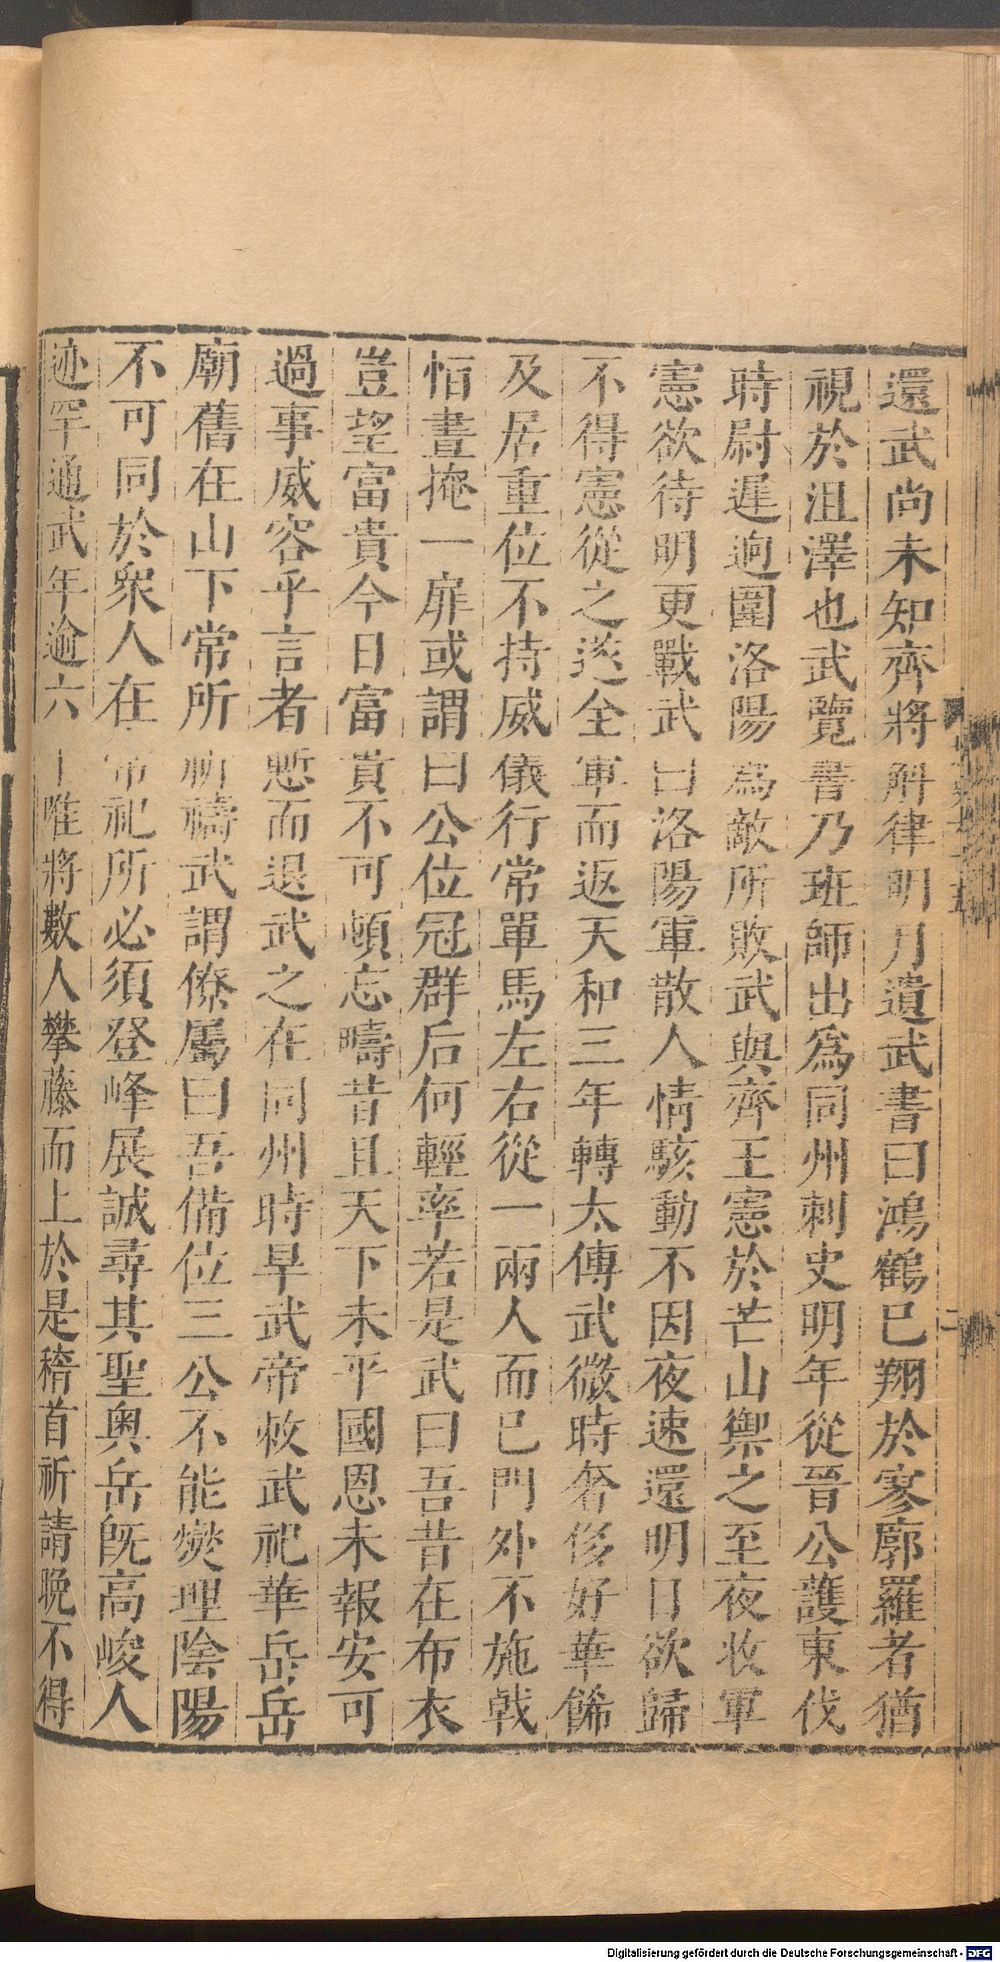 還武尚未知齊將斛律明月遺武書曰鴻鶴已翔於寥廓羅者猶
視於沮澤也武覽書乃班師出爲同州刺史明年從晉公護東伐
時尉遲迥圍洛陽爲敵所敗武與齊王憲於芒山禦之至夜收軍
憲欲待明更戰武曰洛陽軍散人情駭動不因夜速還明日欲歸
不得憲從之遂全軍而返天和三年轉太傅武微時奢侈好華餙
及居重位不持威儀行常單馬左右從一兩人而已門外不施戟
恒晝掩一扉或謂曰公位冠群后何輕率若是武曰吾昔在布衣
豈望富貴今日富貴不可頓忘疇昔且天下未平國恩未報安可
過事威容乎言者慙而退武之在同州時旱武帝敕武祀華岳岳
廟舊在山下常所祈禱武謂僚屬曰吾備位三公不能爕理陰陽
不可同於衆人在常祀所必須登峰展誠尋其聖奥岳旣高峻人
迹罕通武年逾六十唯將數人攀藤而上於是稽首祈請晩不得
二
Digitalisierung gefördert durch die Deutsche Forschungsgemeinschaft - DFG